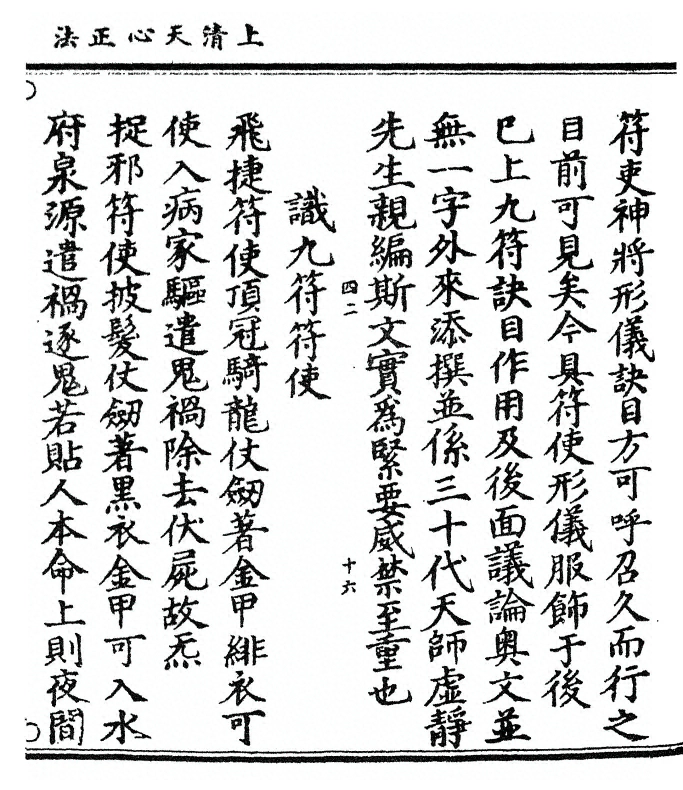 上清天心正法
符吏神將形儀訣目方可呼召久而行之
目前可見矣今具符使形儀服飾于後
巳上九符訣目作用及後面議論奧文並
無一字外來添撰並係三十代天師虛靜
先生親編斯文實為緊要威禁至重也
四二
十六
識九符符使
飛捷符使頂冠騎龍仗劒著金甲緋衣可
使入病家驅遣鬼禍除去伏屍故炁
捉邪符使披髮仗劒著黑衣金甲可入水
府泉源遣禍逐鬼若貼人本命上則夜間